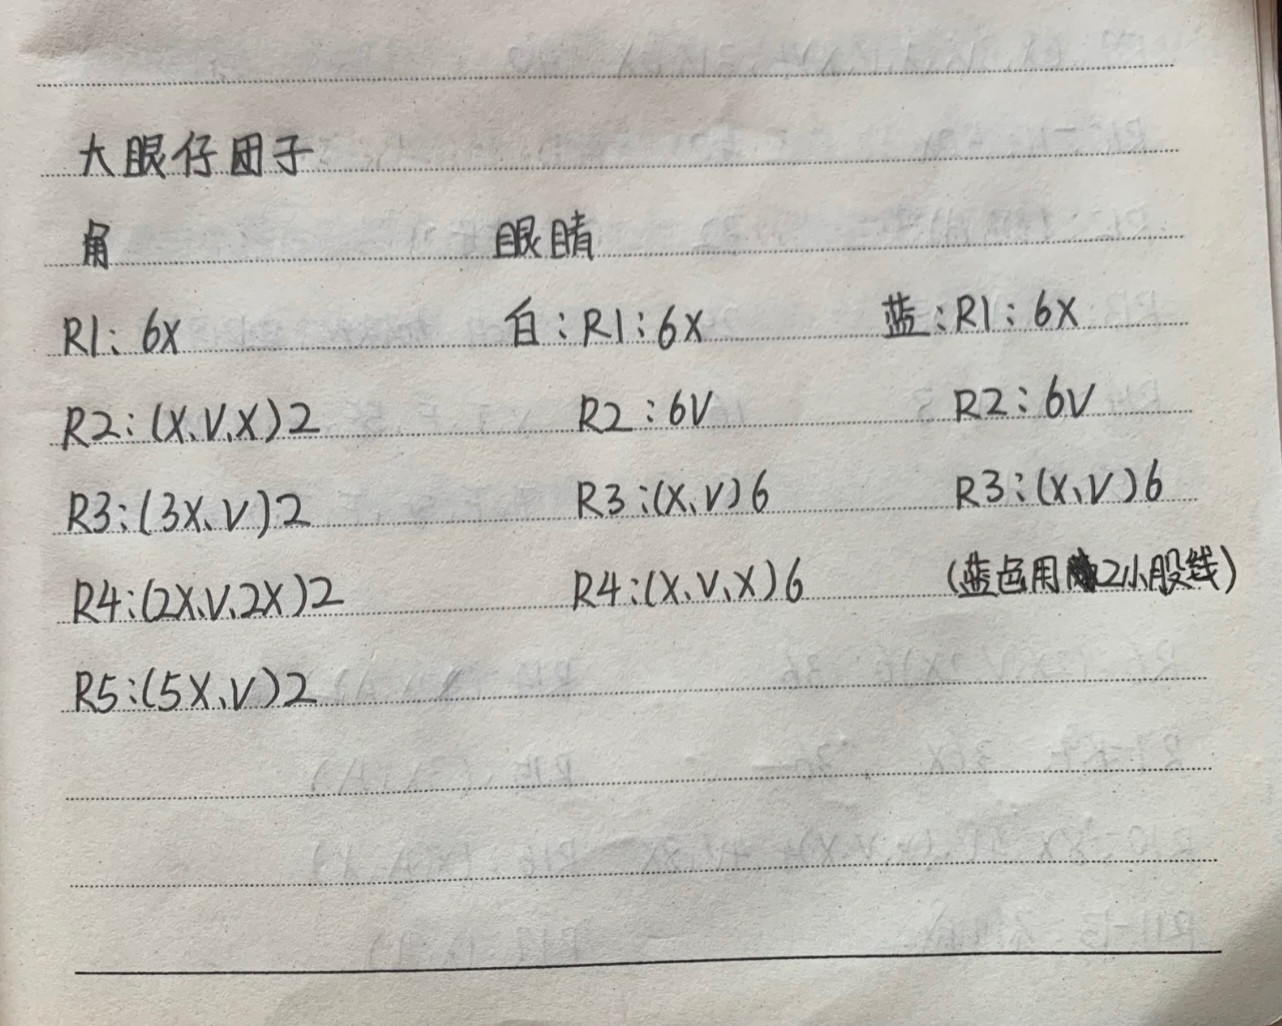 大眼仔团子
角 眼睛
R1: 6X 白:R1:6X 蓝:R1:6X
R2:(X、V、X)2 R2:6V R2:6V
R3:(3X、V)2 R3:(X、V)6 R3:(X、V)6
R4:(2X、V、2X)2 R4:(X、V、X)6 (蓝色用2小股线)
R5:(5X、V)2